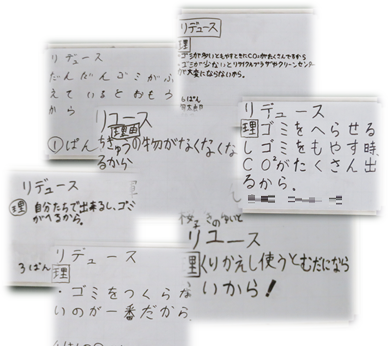 リデュース
理
・ゴミが多いともやすときにCO2がたくさんでるから
・ゴミが少ないとリサイクルプラザやクリーンセンター
が大変にならないから。
リデュース
だんだんゴミがふ
えているとおもう
から
リユース
理由
①ぱん ちきゅうの物がなくなくな
るから
リデュース
理 ゴミをへらせる
しゴミをもやす時
CO2がたくさん出
るから。
リデュース
理 自分たちで出来るし、ゴミ
がへるから。
3ぱん
リデュース
理
・ゴミをつくらな
いのが一番だから
リユース
理 くりかえし使うとむだになら
ないから!